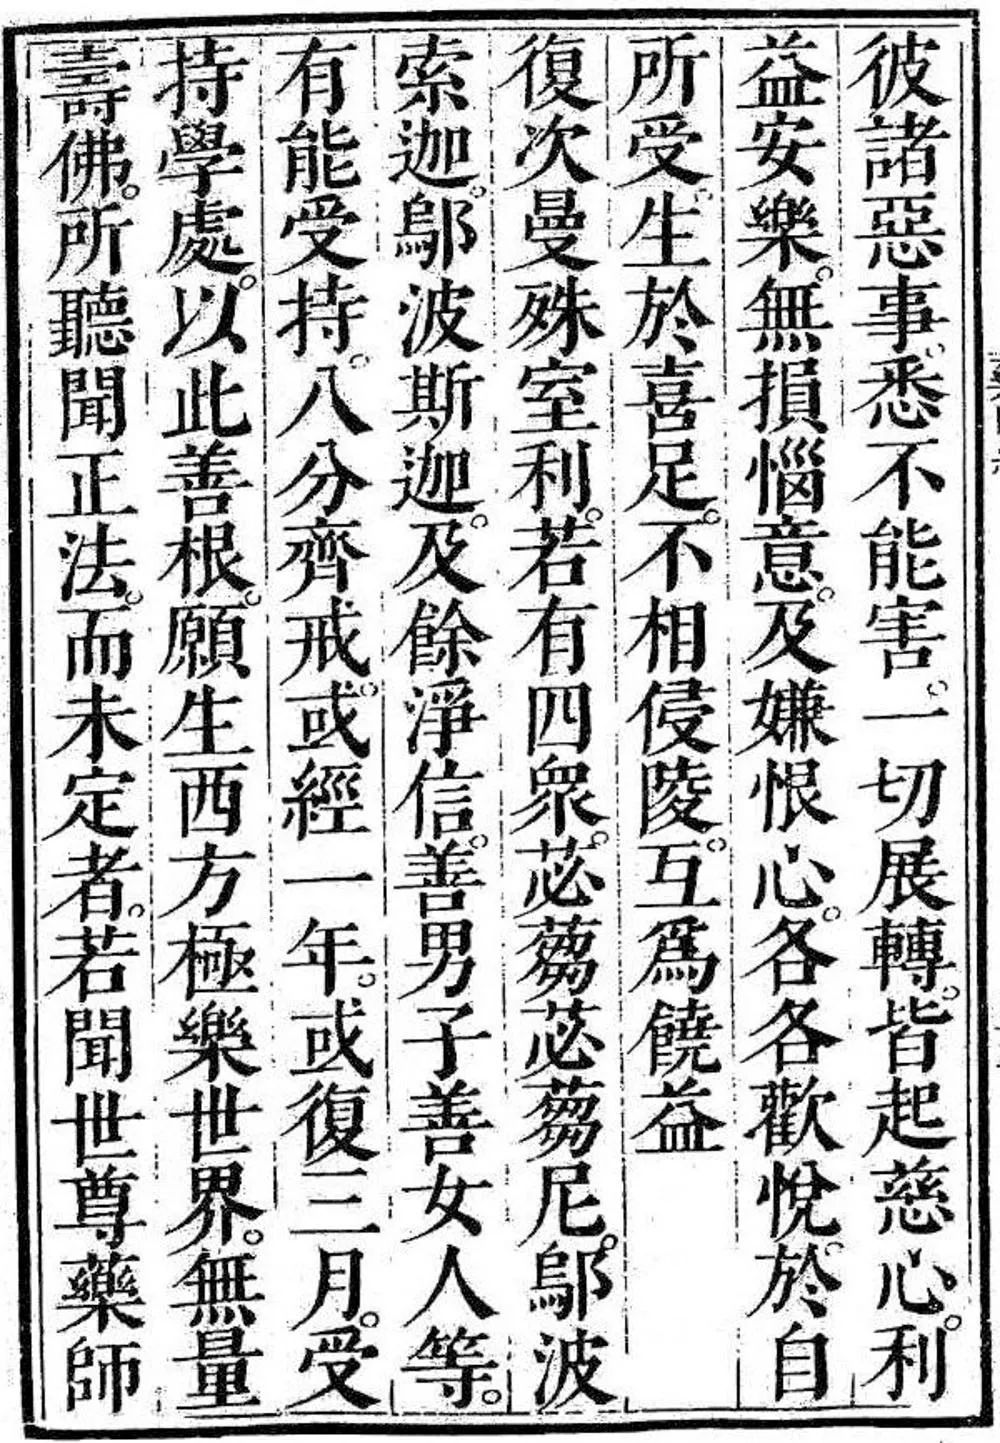 彼諸惡事。悉不能害。一切展轉。皆起慈心。利
益安樂。無損惱意。及嫌恨心。各各歡悅。於自
所受。生於喜足。不相侵陵。互爲饒益
復次曼殊室利。若有四衆。苾蒭苾蒭尼。鄔波
索迦。鄔波斯迦。及餘淨信。善男子善女人等。
有能受持。八分齊戒。或經一年。或復三月。受
持學處。以此善根。願生西方極樂世界。無量
壽佛。所聽聞正法。而未定者。若聞世尊藥師